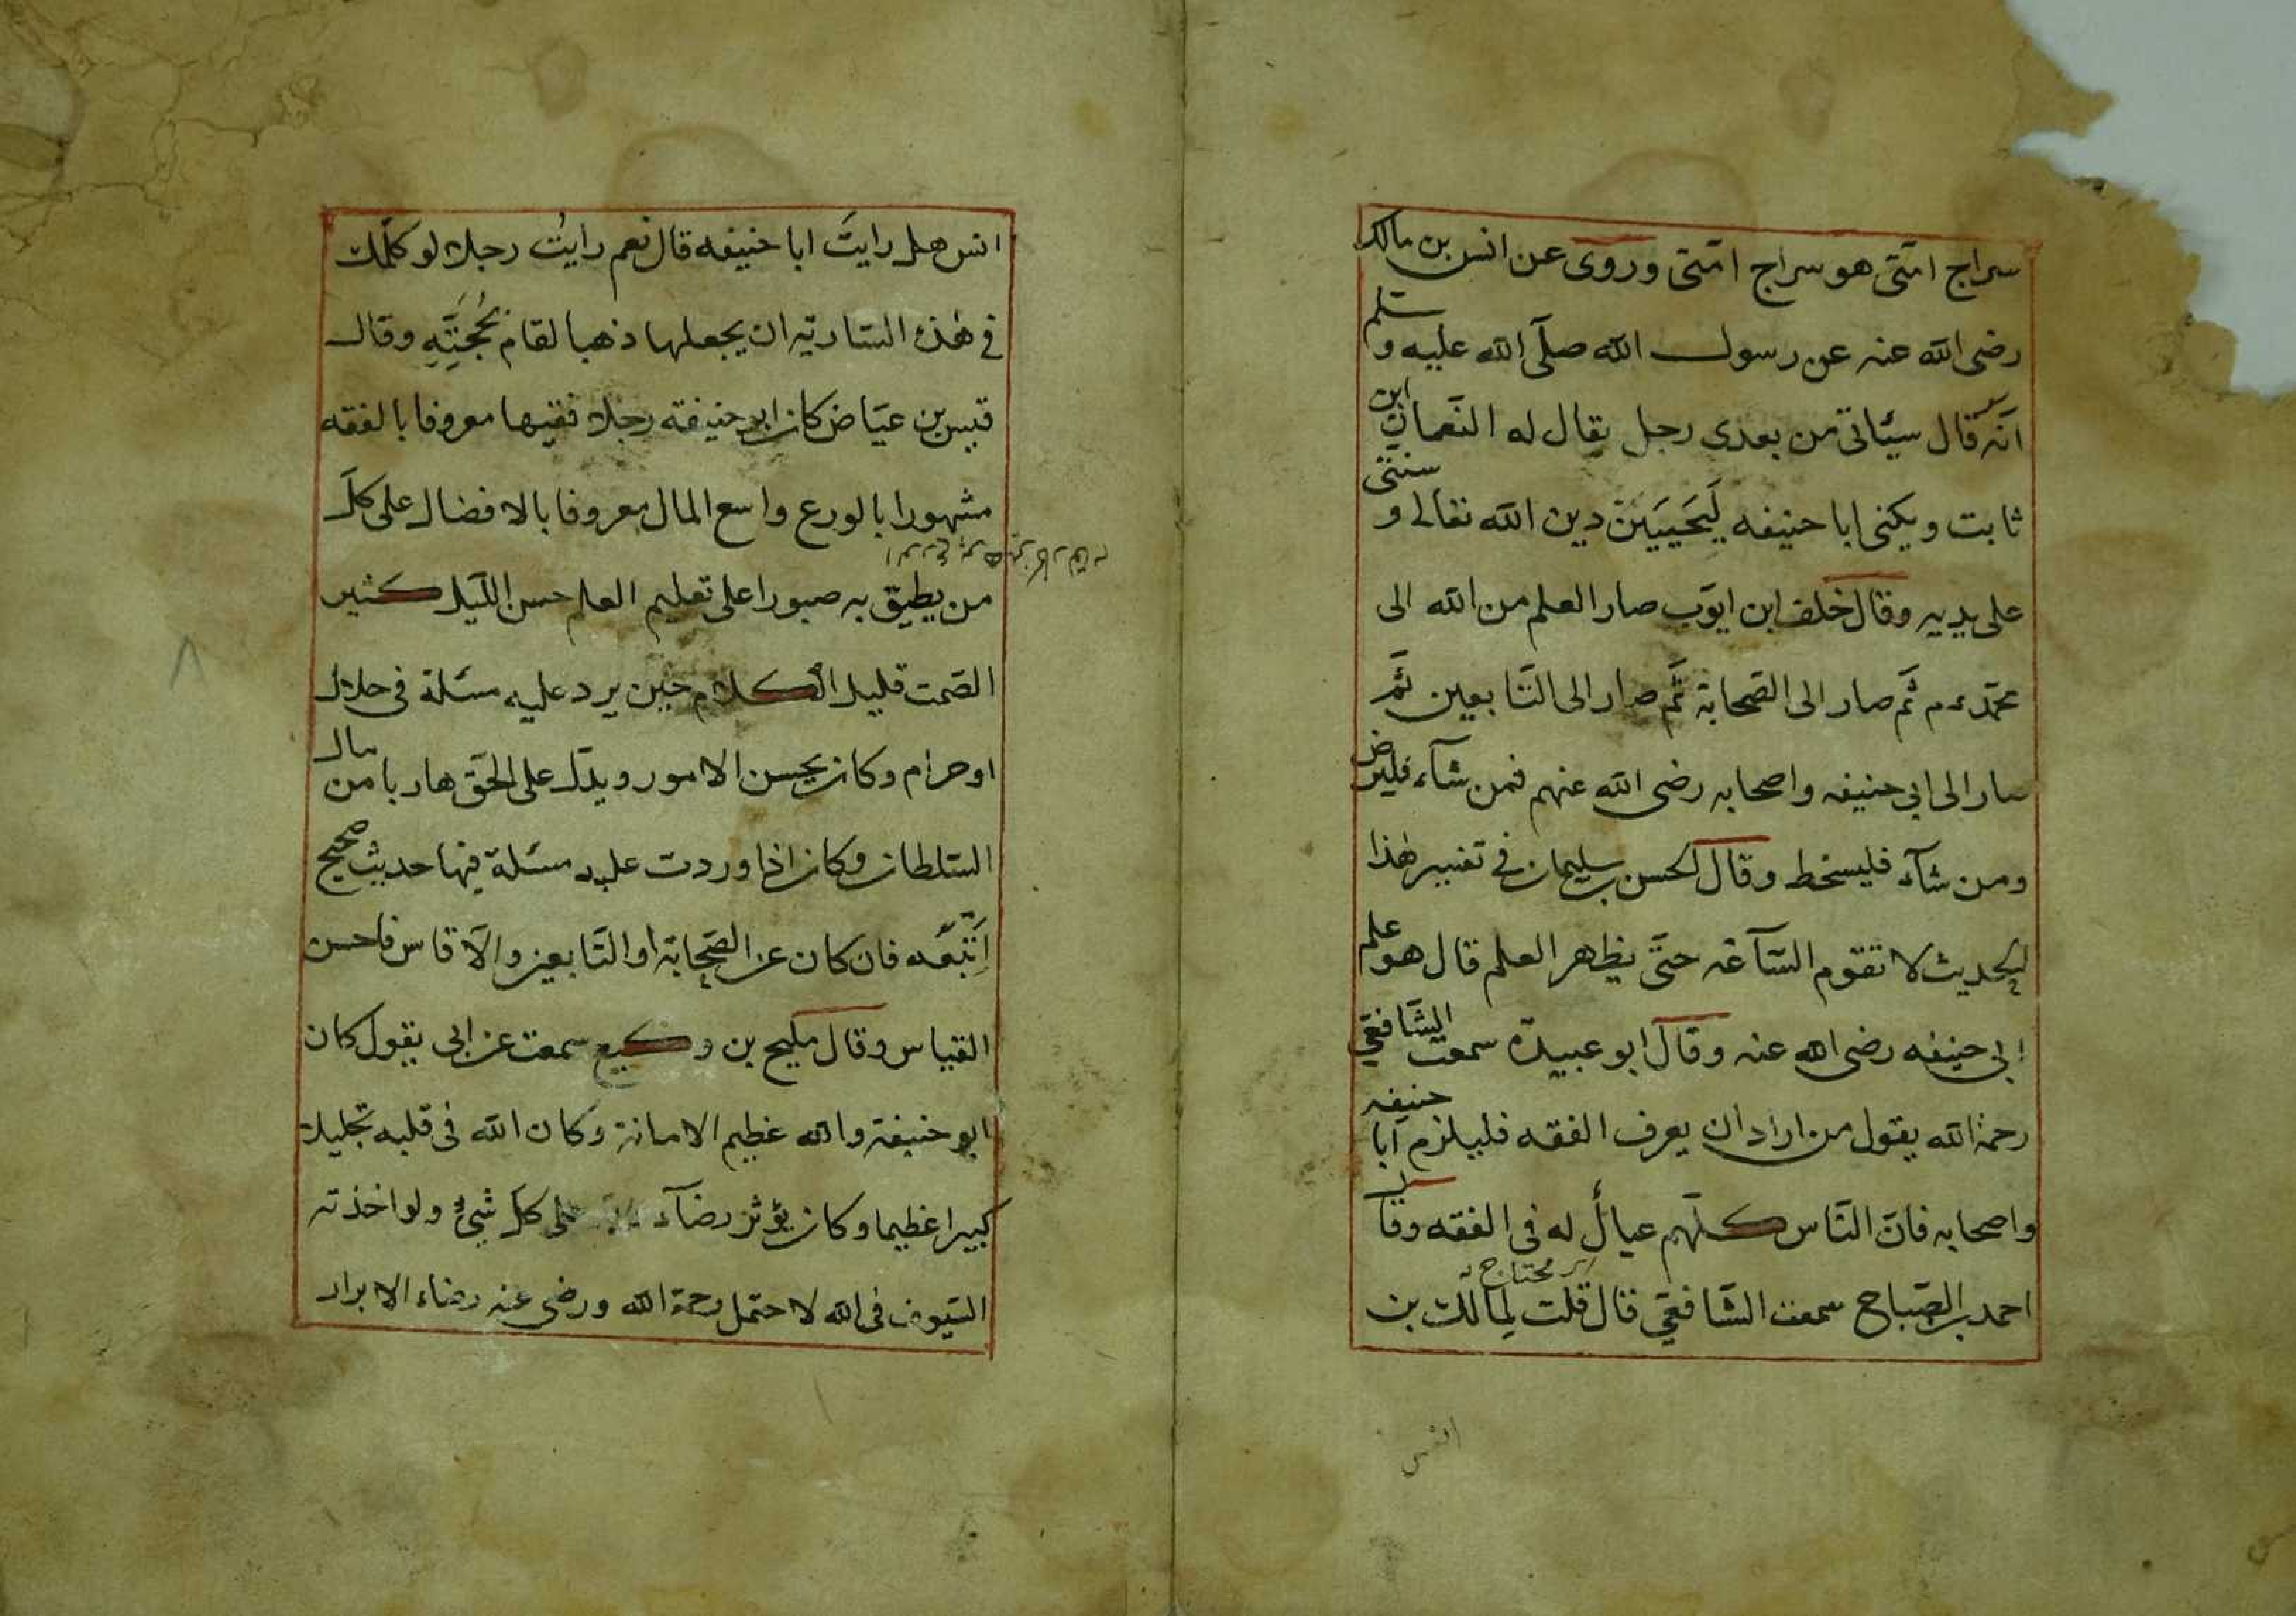 سراج امّتى هو سراج امّتى وروى عن انس بن مالك
رضى الله عنه عن رسول الله صلّى الله عليه و سلم
انّه قال سيئاتى من بعدى رجل يقال له النّعمان ابن
ثابت ويكنى ابا حنيفه لَيَحيَيَنّ دين الله تعالى و سنتى
على يديه وقال خلف ابن ايوّب صار العلم من الله الى
محمّد ءم ثمّ صار الى الصّحابة ثمّ صار الى التّابعين ثمّ
صار الى ابى حنيفه واصحابه رضى الله عنهم فمن شآء فليرض
ومن شآء فليسخط وقال الحسن بن سليمان فى تفسير هٰذا
الحديث لا تقوم السّآعة حتّى يظهر العلم قال هو علم
ابى حنيفه رضى الله عنه وقال ابو عبيدة سمعت الشّافعّى
رحمة الله يقول من اراد ان يعرف الفقه فليلزم ابا حنيفه
واصحابه فانّ النّاس كلّهم عيالٌ له فى الفقه وقال
محتاج
احمد بن الصّباح سمعت الشّافعّى قال قلت لِمالك بن
انس
انس هل رايتَ ابا حنيفه قال نعم رايتُ رجلا لو كلّمك
فى هٰذه السّارية ان يجعلها ذهبا لقام بُحجّتِهِ وقال
قيس بن عيّاض كان ابو حنيفة رجلا فقيها معروفا بالفقه
مشهورا بالورع واسع المال معروفا بالافضال على كلّ
من يطيق به صبورا على تعليم العلم حسن اللّيل كثير
الصّمت قليل الكلام حين يرد عليه مسئلة فى حلال
او حرام وكان يحسن الامور ويدلّ على الحقّ هاربا من مال
السّلطان وكان اذا وردت عليه مسئلة فيها حديث صحيح
اِتّبَعَه فان كان عن الصّحابة او التّابعين والاّ قاس فاحسن
القياس وقال مليح بن وكيع سمعت عن ابى يقول كان
ابو حنيفة والله عظيم الامانة وكان الله فى قلبه جليلا
كبيرا عظيما وكان يؤثر رضآء على كلّ شئٍ ولو اخذته
السّيوف فى الله لاحتمل رحمة الله ورضى عنه رضاء الابرار